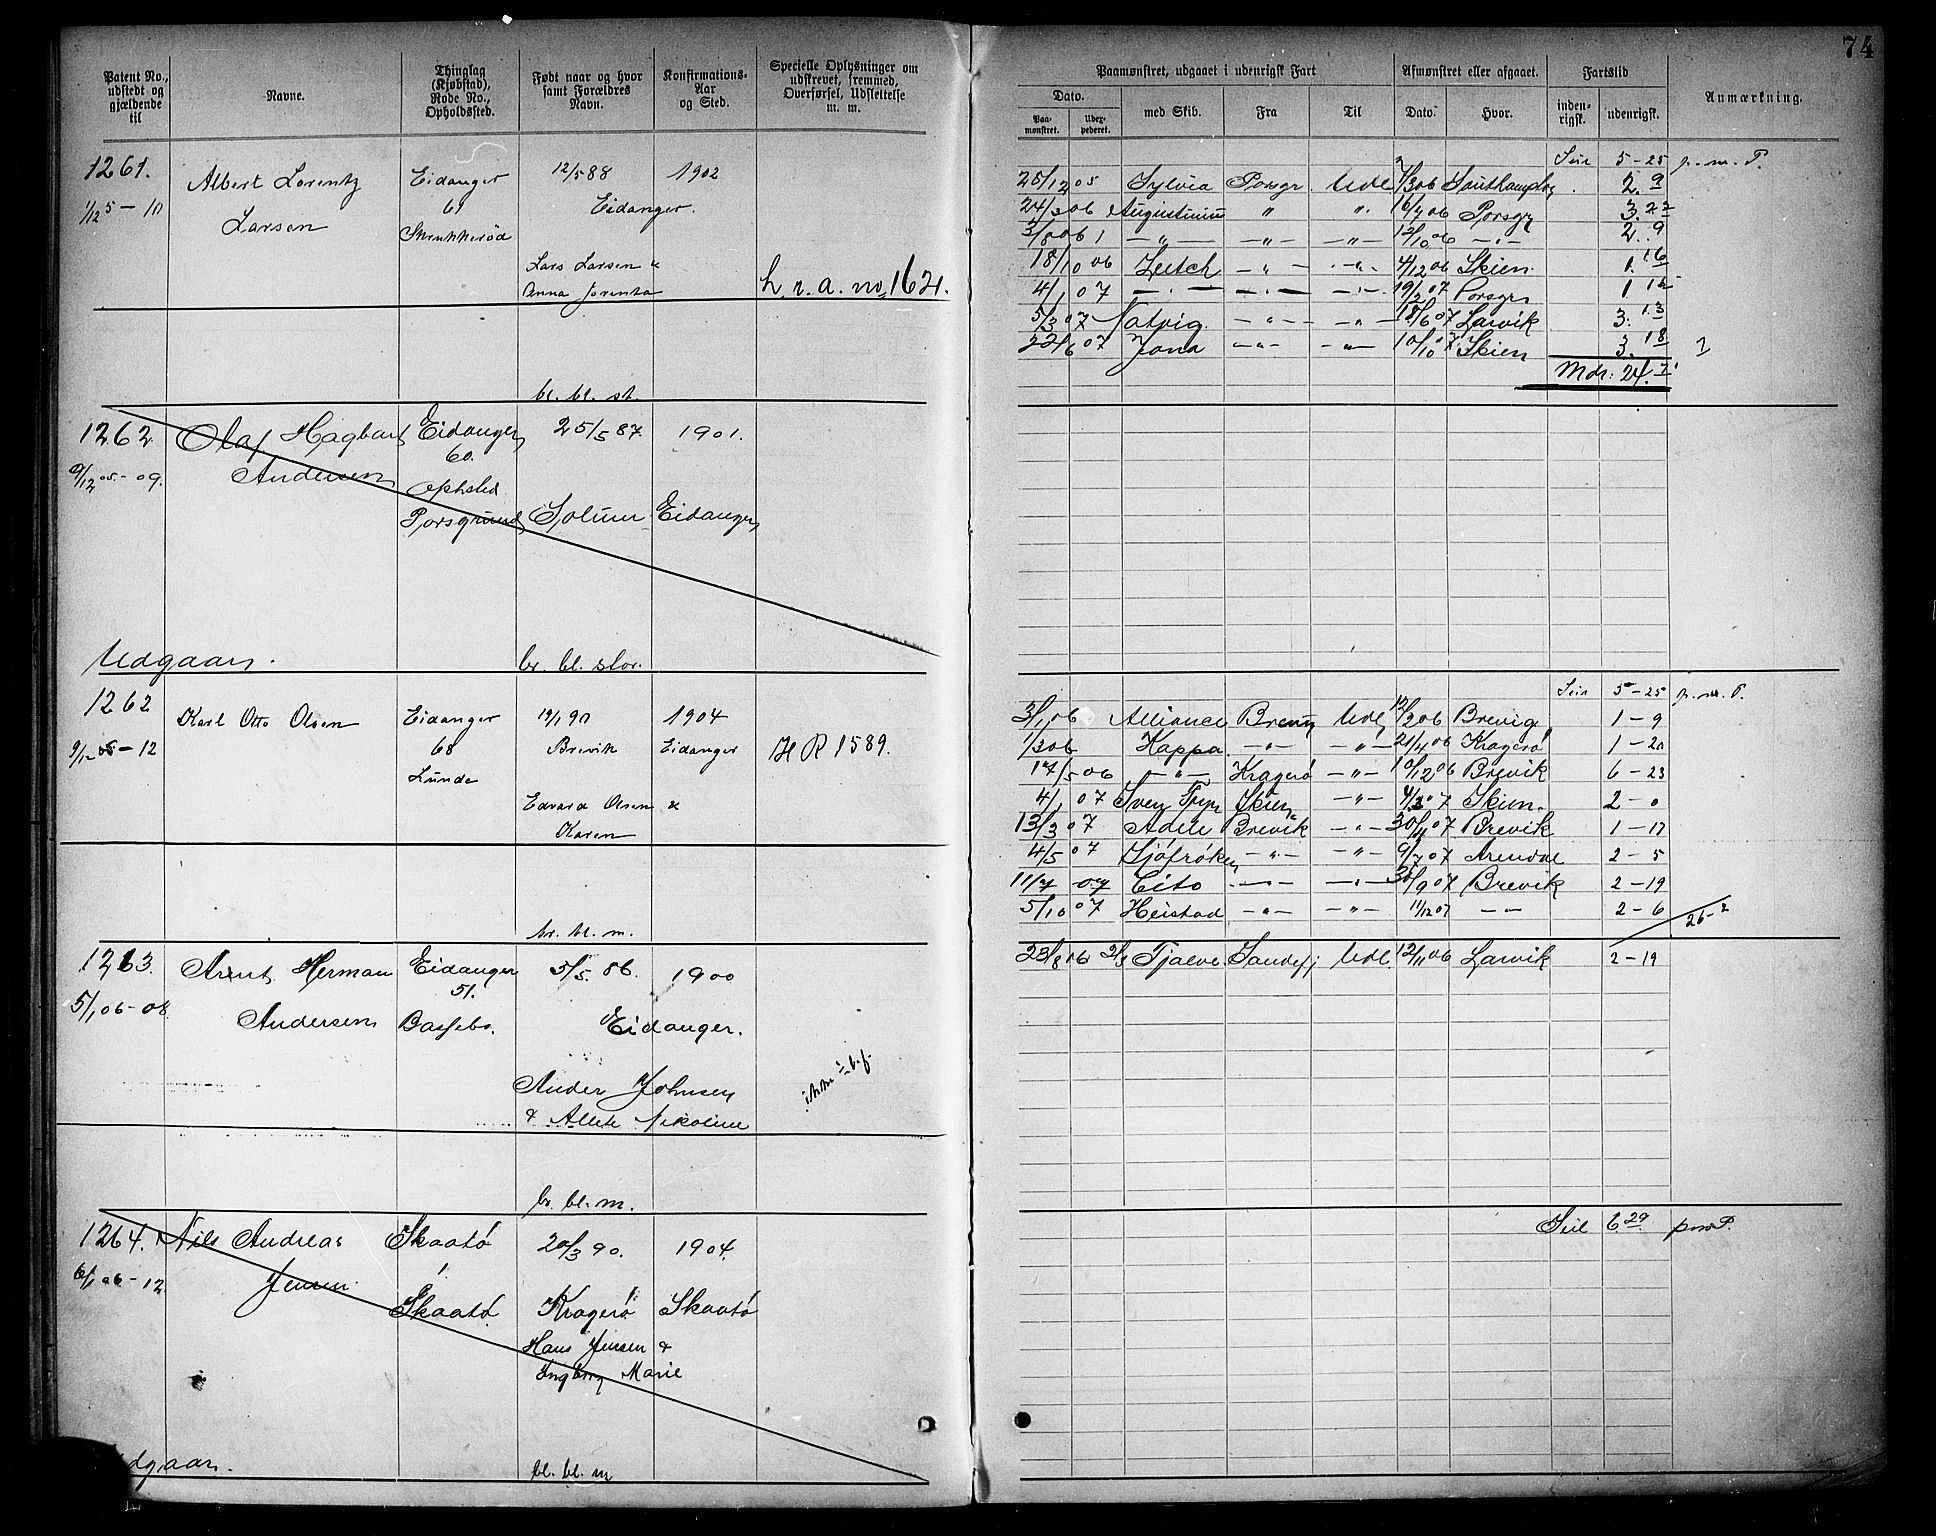 74
Patent No., udstedt og gjældende til
Navne.
Thinglag (Kjøbstad), Rode No., Opholdssted.
Født naar og hvor samt Forældres Navn.
Konfirmations- Aar og Sted.
Specielle Oplysninger om udskrevet, fremmed, Overførsel, Udslettelse m. m.
Paamønstret, udgaaet i udenrigsk Fart
Afmønstret eller afgaaet.
Fartstid
Anmærkning.
Dato.
Paa- mønstret.
med Skib.
Fra
Til
Dato.
Hvor.
inden- rigsk.
udenrigsk.
1261. Albert Lorentz Eidanger 12/5 88 1902
1/12 5 – 10 Larsen 61 Eidanger.
Lars Larsen &
Anna
h. r. a. no 1621.
bl. bl. st.
5 – 25 p. m. P.
25/12 05 Sylvia Porsgr Udl 7/3 06 2. 9
24/3 06 " " 16/7 06 Porsgr 3. 22
3/8 06 – " – – " – – " – 12/10 06 – " – 2. 9
18/10 06 – " – – " – 4/12 06 Skien. 1. 16
4/1 07 – " – – " – – " – 19/2 07 Porsgr 1
5/3 07 Natvig. – " – – " – 18/6 07 Larvik 3. 13
22/6 07 Jona – " – – " – 10/10 07 Skien 3. 18
Mdr: 24. 7
1262 Olaf Hagbart Eidanger 25/5 87. 1901.
9/12 05 - 09. Andersen 60.
Porsgrund Solum Eidanger
Udgaar. br. bl. stor.
1262 Karl Otto Olsen Eidanger 19/1 90 1904
9/12 05 – 12 68 Brevik Eidanger H R 1589.
Lunde
Edvard Olsen &
Karen
br. bl. m.
5 – 25 p. m. P.
3/1 06 Alliance Brevig Udl 12/2 06 Brevig 1 – 9
1/3 06 Kappa – " – – " – 21/4 06 Kragerø 1 – 20
17/5 06 – " – Kragerø – " – 10/12 06 Brevik 6 – 23
4/1 07 Skien – " – 4/3 07 Skien. 2 – 0
13/3 07 Adele Brevik – " – 30/4 07 Brevik 1 – 17
4/5 07 Sjøfrøken – " – – " – 9/7 07 Arendal 2 – 5
11/7 07 Cito – " – – " – 30/9 07 Brevik 2 – 19
5/10 07 Heistad – " – – " – 11/12 07 – " – 2 – 6
26 – 2
1263. Arent Herman Eidanger 5/5. 86. 1900
5/1 06 - 08 Andersen 51. Eidanger.
Ander Johnsen
& Alete Nikoline
br. bl. m.
23/8 06 Tjalve Sandefj Udl. 12/11 06 Larvik 2 – 19
1264. Nils Andreas Skaatø 20/3 90. 1904.
6/1 06 - 12 Jensen
Skaatø Kragerø Skaatø
Hans Jensen &
Ingborg Marie
bl. bl. m
Seil 6. 29